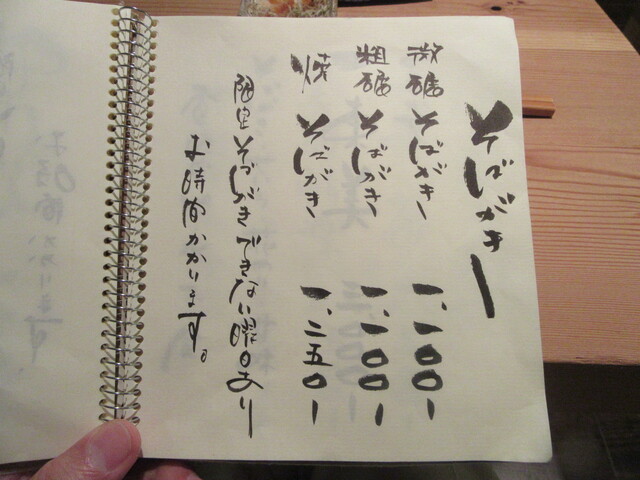 そばがき
微碾 そばがき 一、一〇〇ー
粗碾 そばがき 一、一〇〇ー
焼 そばがき 一、二五〇ー
そばがきできない曜日あり
お時間かかります。